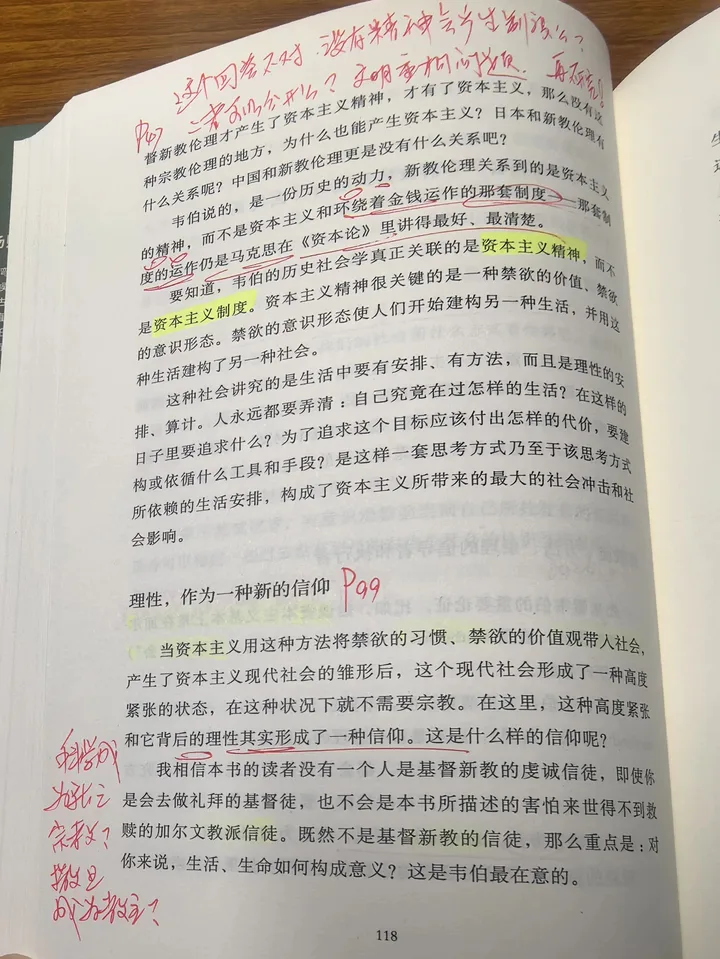 这个回答不对,没有精神会产生制度么?
二者可以分开么?文明互相问题.
P47
督新教伦理才产生了资本主义精神,才有了资本主义,那么没有这
种宗教伦理的地方,为什么也能产生资本主义?日本和新教伦理有
什么关系呢?中国和新教伦理更是没有什么关系吧?
韦伯说的,是一份历史的动力,新教伦理关系到的是资本主义
的精神,而不是资本主义和环绕着金钱运作的那套制度——那套制
度的运作仍是马克思在《资本论》里讲得最好、最清楚。
要知道,韦伯的历史社会学真正关联的是资本主义精神,而不
是资本主义制度。资本主义精神很关键的是一种禁欲的价值、禁欲
的意识形态。禁欲的意识形态使人们开始建构另一种生活,并用这
种生活建构了另一种社会。
这种社会讲究的是生活中要有安排、有方法,而且是理性的安
排、算计。人永远都要弄清:自己究竟在过怎样的生活?在这样的
日子里要追求什么?为了追求这个目标应该付出怎样的代价,要建
构或依循什么工具和手段?是这样一套思考方式乃至于该思考方式
所依赖的生活安排,构成了资本主义所带来的最大的社会冲击和社
会影响。
理性,作为一种新的信仰 P99
当资本主义用这种方法将禁欲的习惯、禁欲的价值观带入社会,
产生了资本主义现代社会的雏形后,这个现代社会形成了一种高度
紧张的状态,在这种状况下就不需要宗教。在这里,这种高度紧张
和它背后的理性其实形成了一种信仰。这是什么样的信仰呢?
我相信本书的读者没有一个人是基督新教的虔诚信徒,即使你
是会去做礼拜的基督徒,也不会是本书所描述的害怕来世得不到救
赎的加尔文教派信徒。既然不是基督新教的信徒,那么重点是:对
你来说,生活、生命如何构成意义?这是韦伯最在意的。
科学成
为新之
宗教么?
撒旦
成为教主?
118